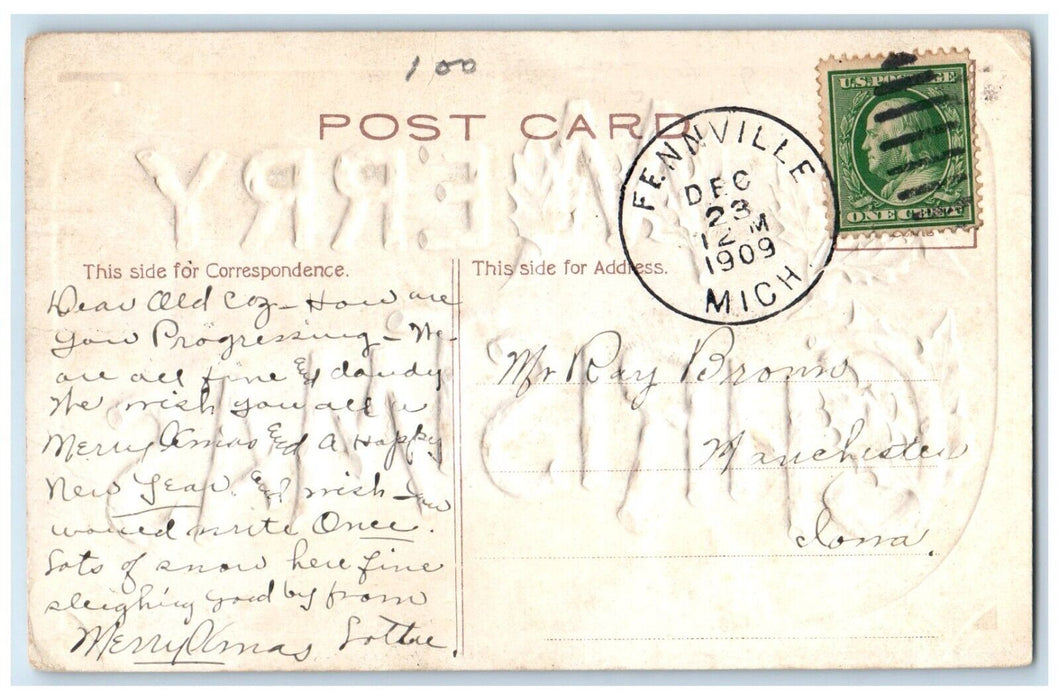 100
POST CARD
U.S. POSTAGE
ONE CENT
FENNVILLE
DEC
23
12 M
1909
MICH.
This side for Correspondence.
Dear Old Coz - How are
you Progressing - We
are all fine and dandy
We wish you all a
Merry Xmas and A Happy
New Year. and wish you
would write Once.
Lots of snow here fine
sleighing good by from
Merry Xmas Lottie.
This side for Address.
Mr Ray Brown
Manchester
Iowa.
MERRY
CHRISTMAS